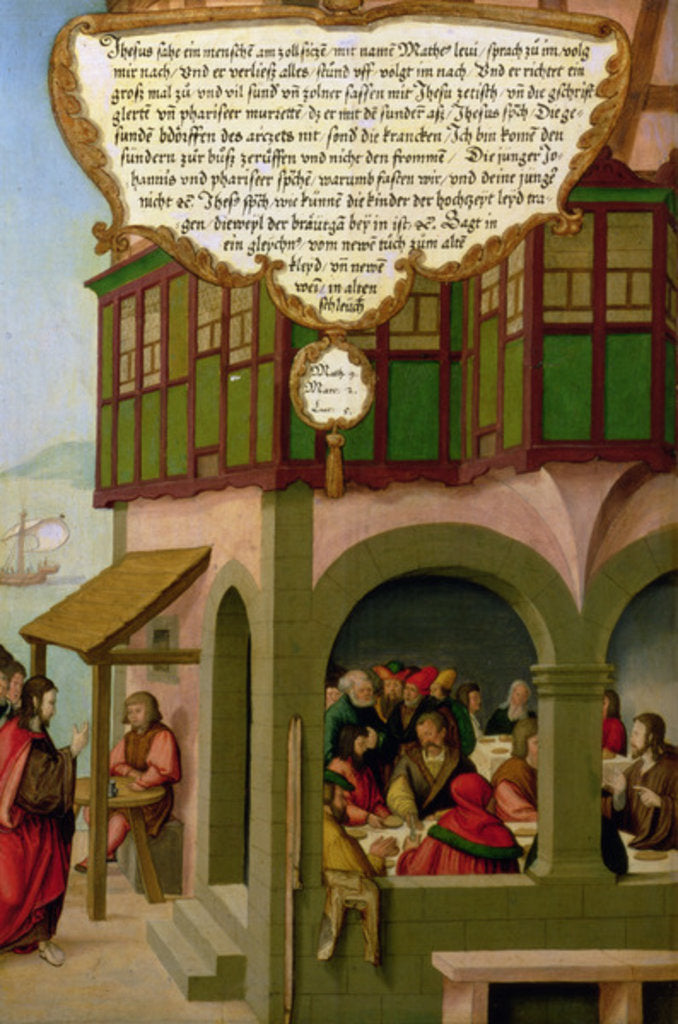 Jhesus sahe ein menschē am zoll sitzē / mit namē Mathe' levi / sprach zů im / volg
mir nach / Vnd er verließ alles / stůnd vff / volgt im nach / Vnd er richtet ein
groß mal zů / vnd vil sünd' vn̄ zolner sassen mit Jhesu zetisch / vn̄ die gschrifft
glertē vn̄ phariseer murletē / dz er mit dē sunder aß / Jhesus sp̄ch / Die ge-
sunden bdörffen des arczets nit / sond' die krancken / Ich bin komē den
sündern zur bůß zerůffen vnd nicht den frommē / Die junger Jo-
hannis vnd phariseer sp̄chē / warumb fasten wir / vnd deine jungē
nicht &c. Jhesꝰ sp̄ch / wie künnē die kinder der hochzeyt leyd tra-
gen / dieweyl der bräutgā bey in ist &c. Sagt in
ein gleychnꝰ vom newē tůch zům altē
kleyd / vn̄ newē
wein in alten
schleuch
Math. 9.
Marc. 2.
Luc. 5.